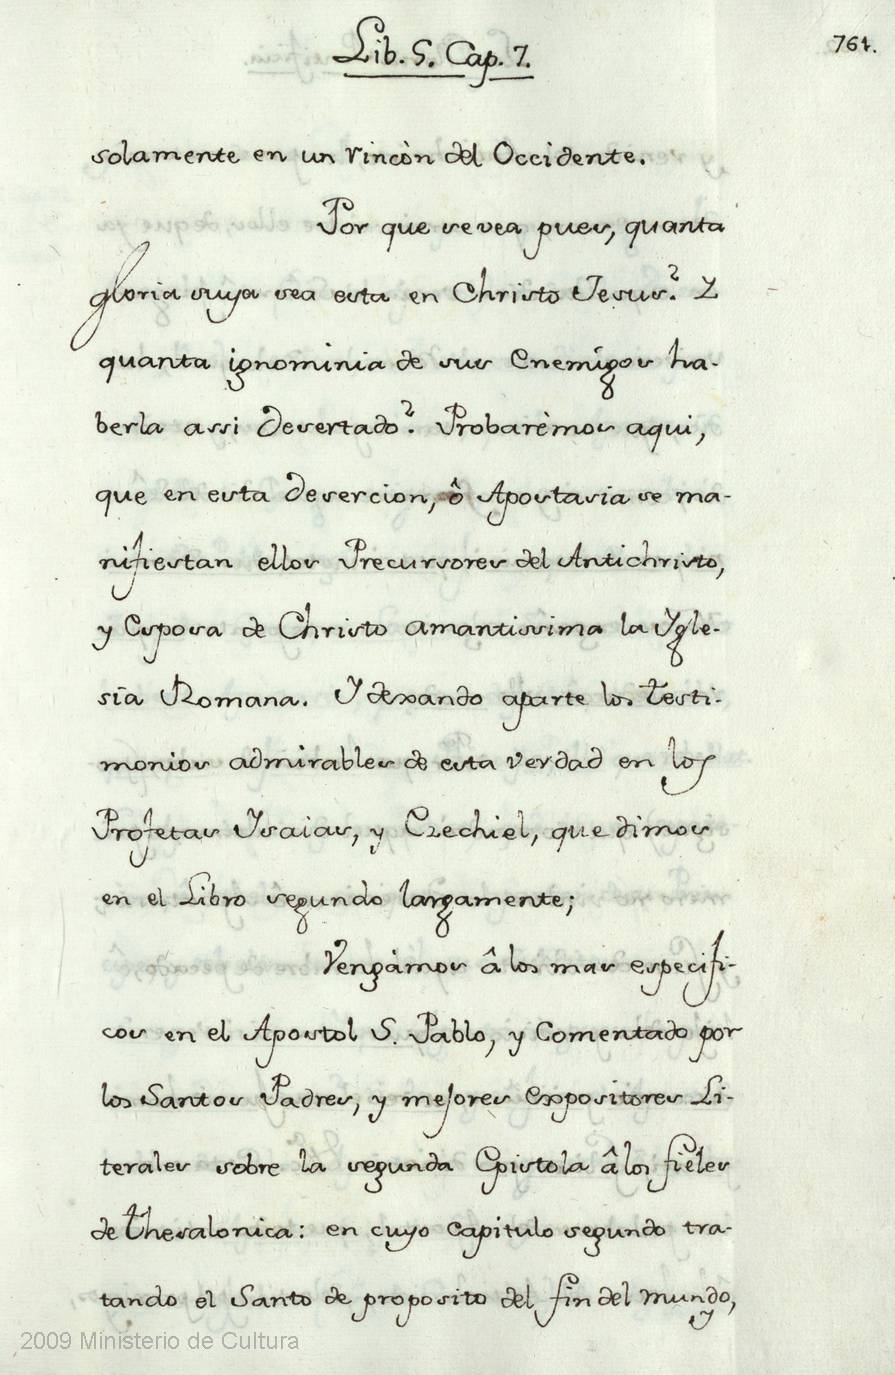 Lib. 5. Cap. 7.
761.
solamente en un rincòn del Occidente.
Por que se vea pues, quanta
gloria suya sea esta en Christo Jesus? Y
quanta ignominia de sus Enemígos ha-
berla assi desertado? Probarèmos aqui,
que en esta desercion, ô Apostasia se ma-
nifiestan ellos Precursores del Antichristo,
y Esposa de Christo amantissima la Ygle-
sia Romana. Y dexando aparte los testi-
monios admirables de esta verdad en los
Profetas Ysaias, y Ezechiel, que dimos
en el Libro segundo largamente;
Vengàmos â los mas especifi-
cos en el Apostol S. Pablo, y Comentado por
los Santos Padres, y mejores Expositores Li-
terales sobre la segunda Epistola â los fieles
de thesalonica: en cuyo capitulo segundo tra-
tando el Santo de proposito del fin del mundo,
y
2009 Ministerio de Cultura